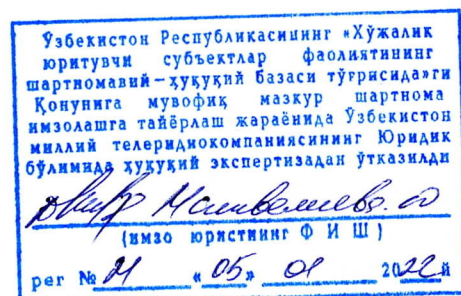 Ўзбекистон Республикасининг «Хўжалик
юритувчи субъектлар фаолиятининг
шартномавий–ҳуқуқий базаси тўғрисида»ги
Қонунига мувофиқ мазкур шартнома
имзолашга тайёрлаш жараёнида Ўзбекистон
миллий телерадиокомпаниясининг Юридик
бўлимида ҳуқуқий экспертизадан ўтказилди
(имзо юристнинг Ф И Ш)
рег № 21 «05» 01 2022й